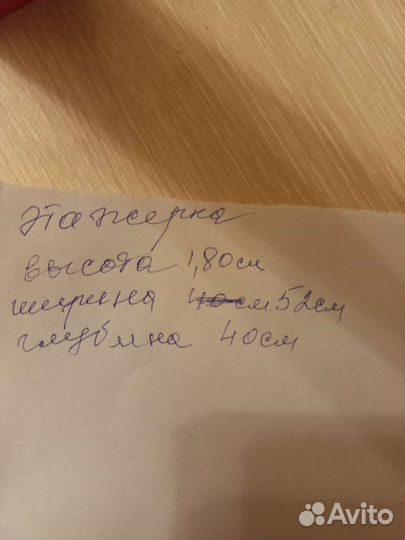 этажерка
высота 1,80см
ширина 40см 52см
глубина 40см
Avito